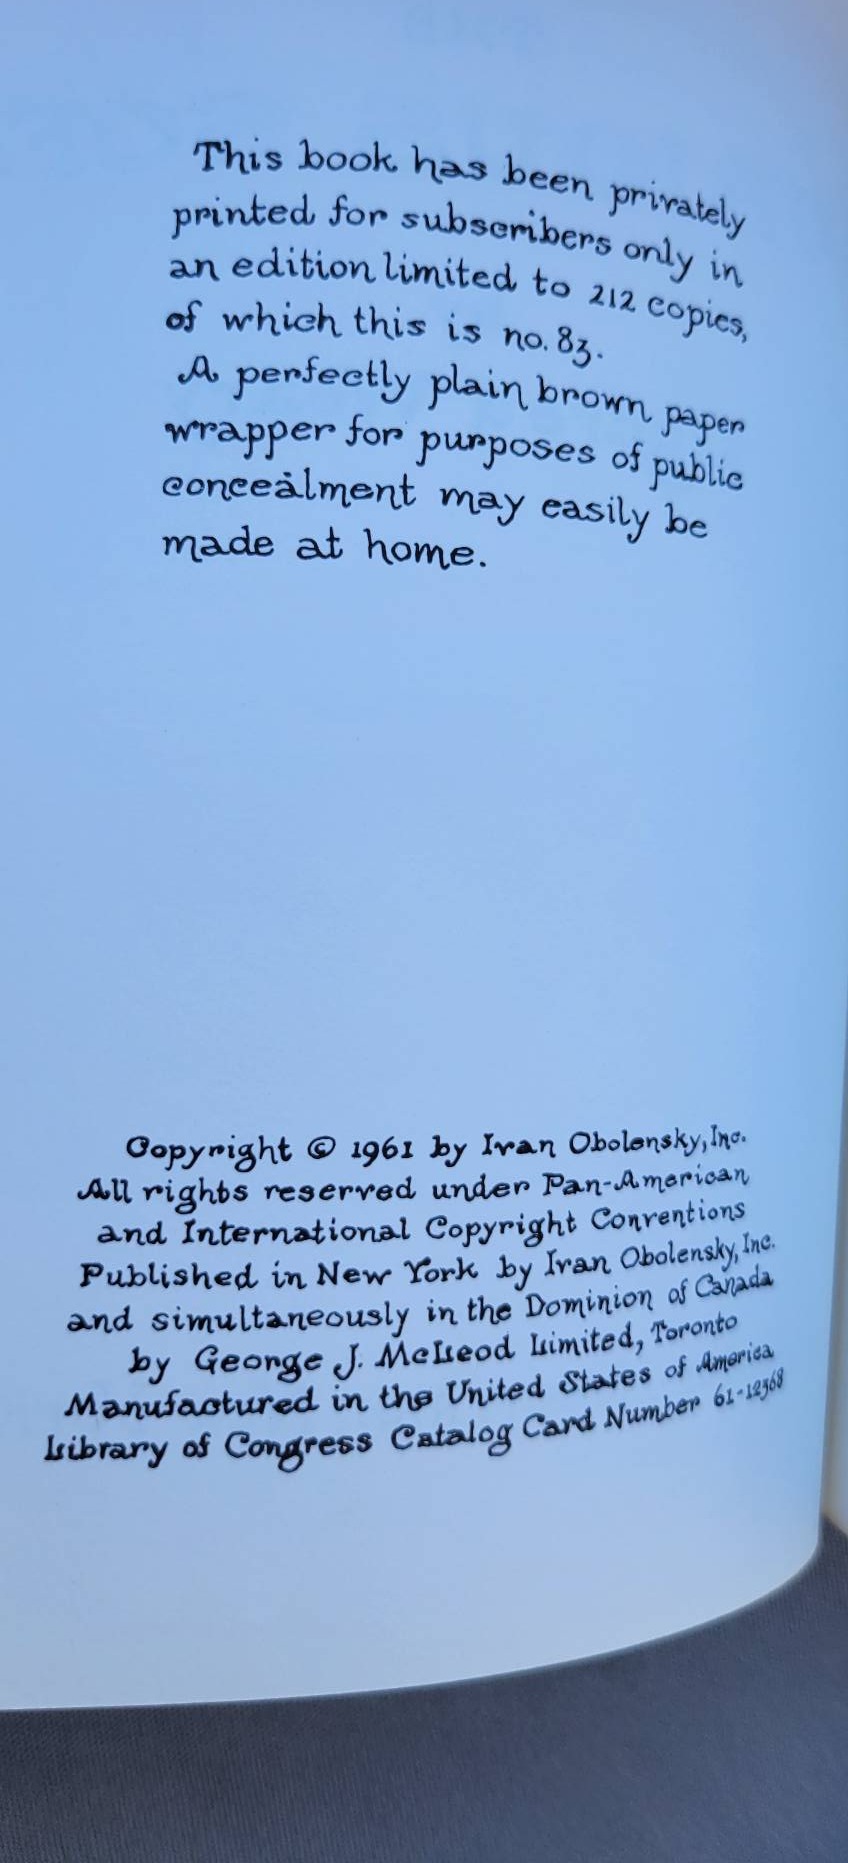 This book has been privately
printed for subscribers only in
an edition limited to 212 copies,
of which this is no. 83.
A perfectly plain brown paper
wrapper for purposes of public
concealment may easily be
made at home.
Copyright © 1961 by Ivan Obolensky, Inc.
All rights reserved under Pan-American
and International Copyright Conventions
Published in New York by Ivan Obolensky, Inc.
and simultaneously in the Dominion of Canada
by George J. McLeod Limited, Toronto
Manufactured in the United States of America
Library of Congress Catalog Card Number 61-12368